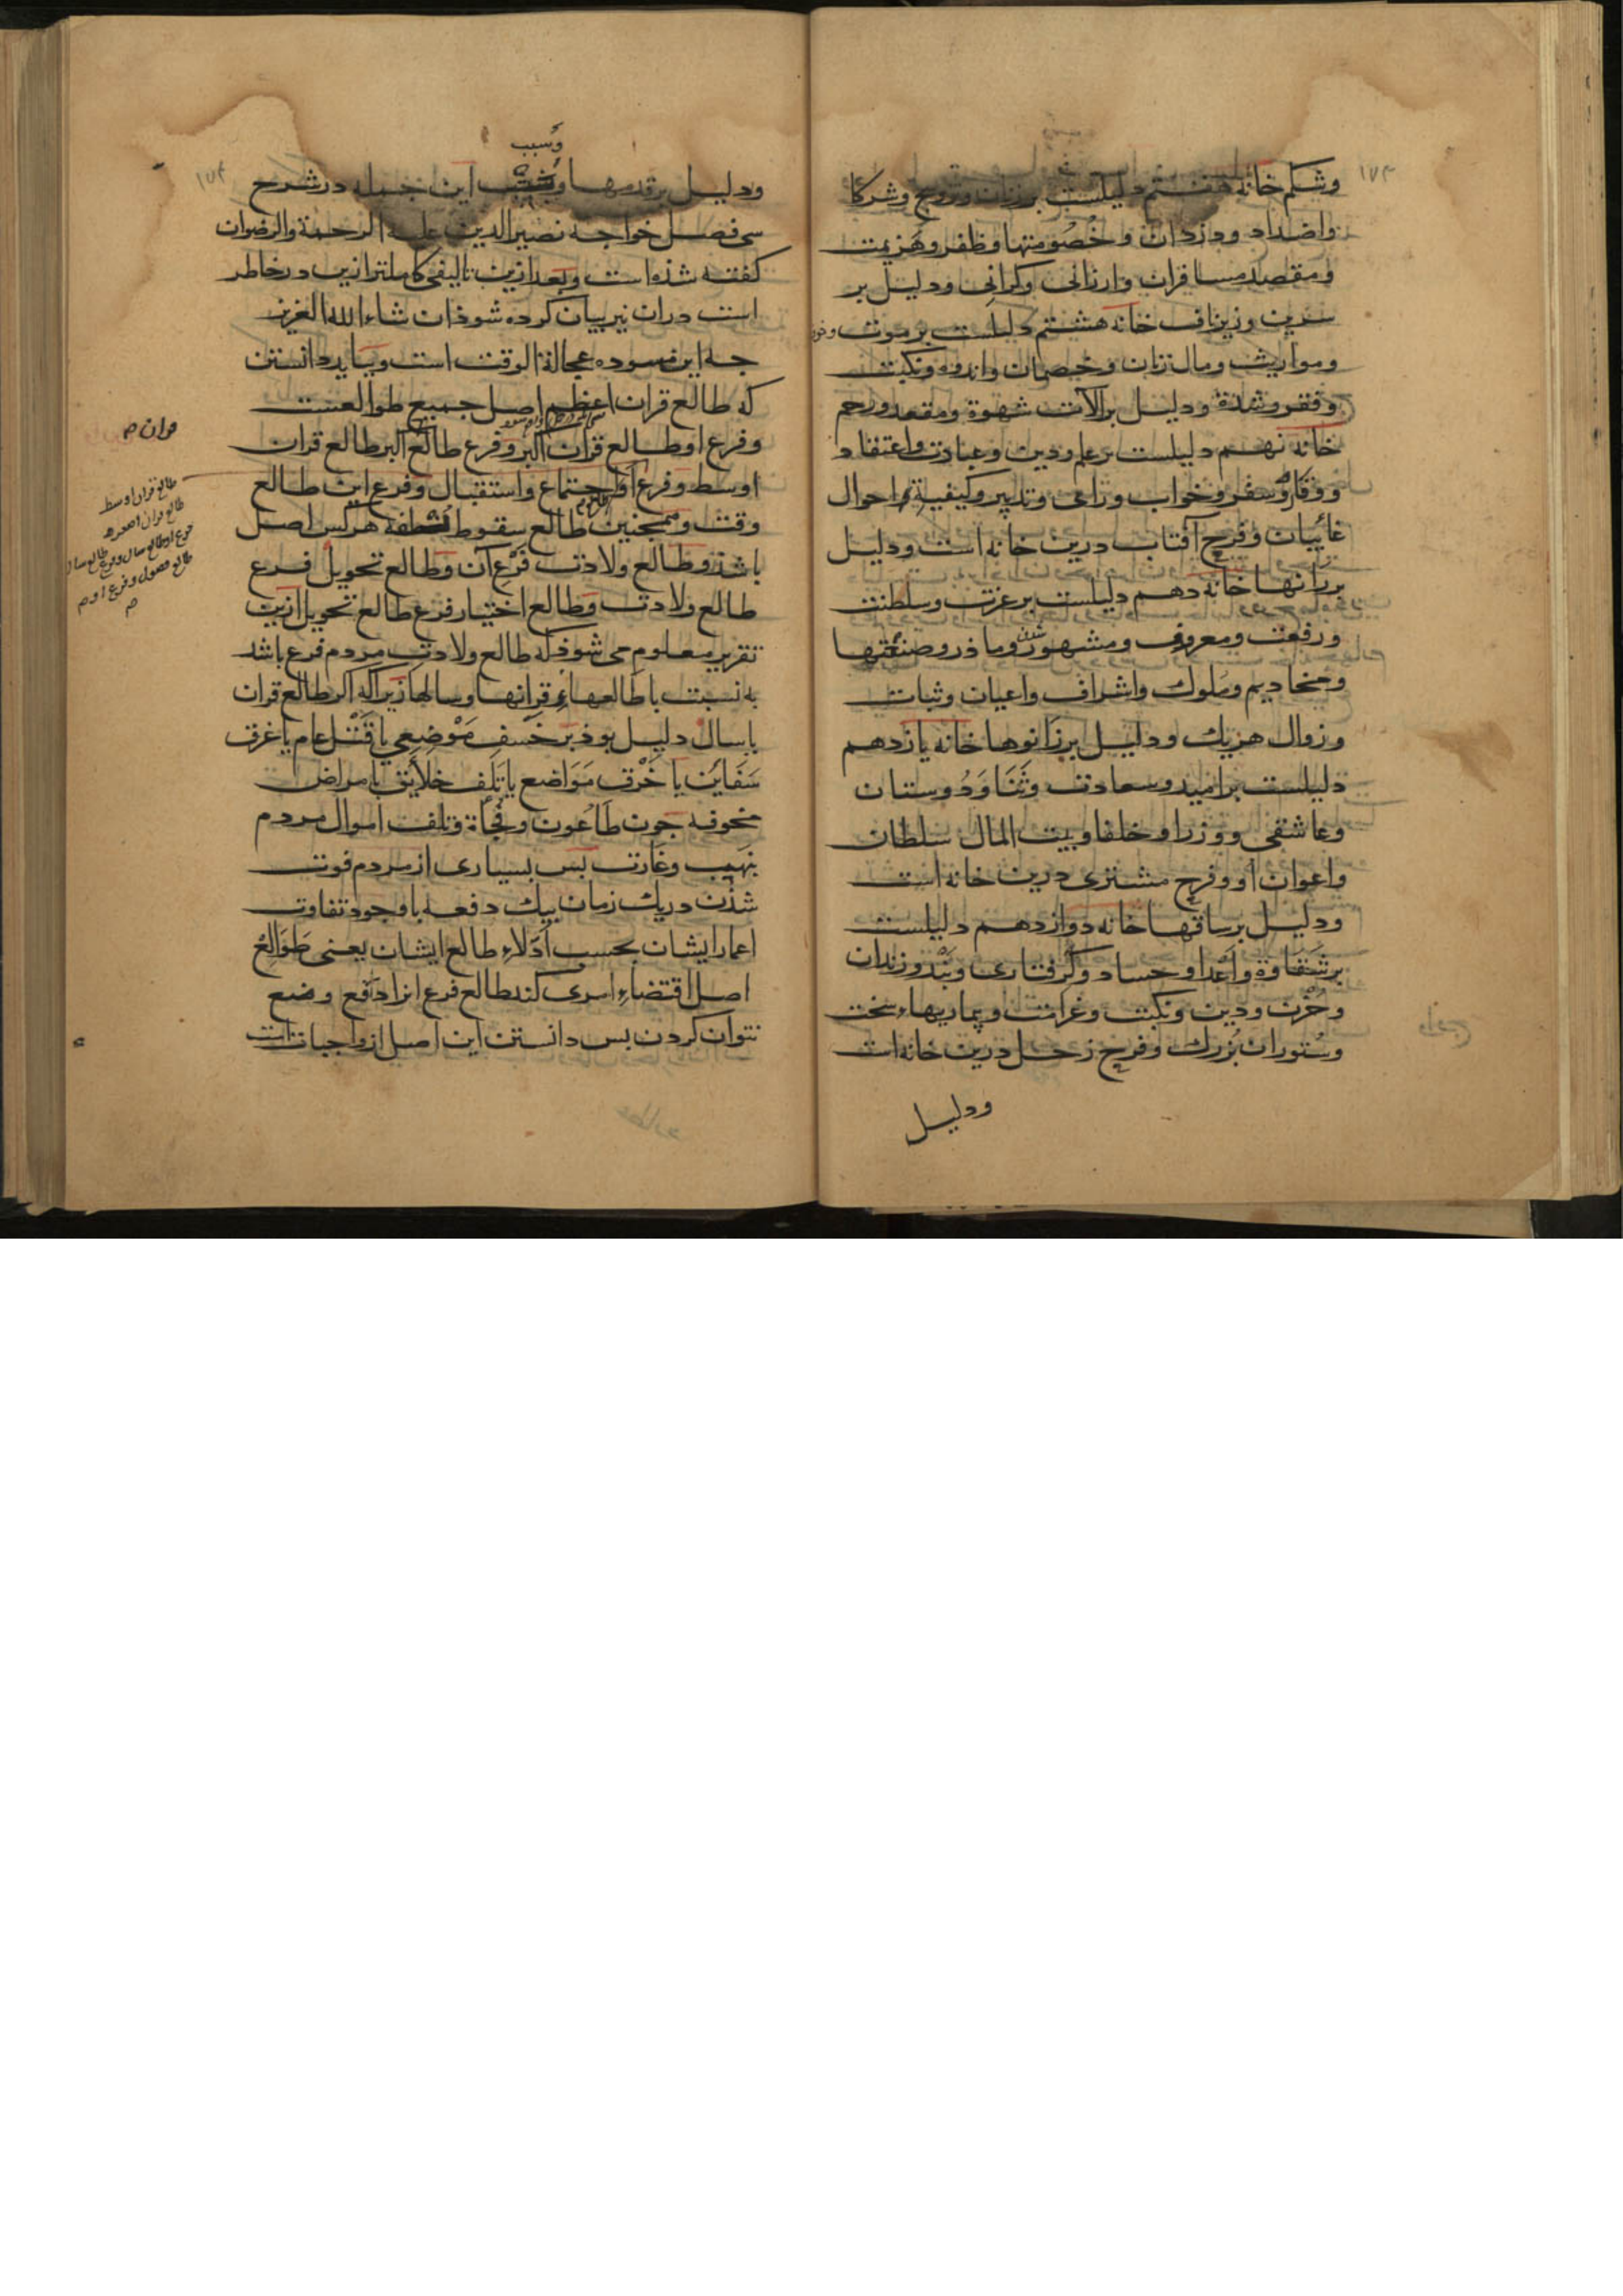 ۱۷۳
وشکم خانه هفتم دلیلست برزنان وتزویج وشرکا
واضداد ودزدان وخصُومتها وظفر وهَزیمت
ومقصد مسافران وارزانی وکرانی ودلیل بر
سرین وزیرناف خانه هشتم دلیلست برموت وخوف
ومواریث ومال زنان وخصمان واندوه ونکبت
وفقر وشدة ودلیل برآلات شهوة ومقعد ورحم
خانه نهم دلیلست برعلم ودین وعبادت واعتقاد
ووقار وسفر وخواب ورای وتدبیر وکیفیة احوال
غائبان وفرح آفتاب درین خانه است ودلیل
بررانها خانه دهم دلیلست برعزت وسلطنت
ورفعت ومعروف ومشهور شدن وماذر وصنعتها
ومخادیم وملوک واشراف واعیان وثبات
وزوال هریک ودلیل برزانوها خانه یازدهم
دلیلست برامید وسعادت وثَنَا ودُوستان
وعاشقی ووزرا وخلفا وبیت المال سلطان
واعوان أو وفرح مشتری درین خانه است
ودلیل برساقها خانه دوازدهم دلیلست
برشَقَاوة وأعدا وحساد وکرفتاری وبَند وزندان
وحُزن ودین ونکبت وغرامت وبیماریهاء سخت
وسُتوران بُزرک وفرح زحل درین خانه است
ودلیل
۱۷۴
وسبب
ودلیل برقدمها وسبب این جمله درشرح
سی فصل خواجه نصیرالدین علیه الرحمة والرضوان
کفته شذه است وبعد ازین تالیفی کاملتر ازین درخاطر
است دران نیز بیان کرده شوذ ان شاء الله العزیز
جه این مسوده عجالة الوقت است وبباید دانستن
که طالع قران اعظم اصل جمیع طوالعست
وفرع او طالع قران اکبر وفرع طالع اکبر طالع قران
اوسط وفرع او اجتماع واستقبال وفرع این طالع
وقت وهمجنین طالع سقوط نطفه هرکس اصل
باشذ وطالع ولادت فَرْع آن وطالع تحویل فرع
طالع ولادت وطالع اختیار فرع طالع تحویل ازین
تقریر معلوم می شوذ که طالع ولادت مردم فرع باشد
به نسبت با طالعهاء قرانها وسالها زیرا که اکر طالع قران
یا سال دلیل بوذ بر خسف مَوْضِعی یا قَتْل عام یا غرق
سَفَاین یا خَرْق مَوَاضع یا تَلَف خلایق بامراض
مخوفه جون طَاعُون وفُجأة وتلف اموال مردم
بنهیب وغارت بس بسیاری از مردم فوت
شذن دریک زمان بیک دفعه باوجود تفاوت
اعمار ایشان بحسب أدلاء طالع ایشان یعنی طَوَالع
اصل اقتضاء امری کند طالع فرع انرا دافع وضع
نتوان کردن بس دانستن این اصل از واجبات است
قران م
طالع قران اوسط
طالع قران اصغر و
فرع او طالع سال وفرع طالع سال
طالع فصول وفرع او م
م